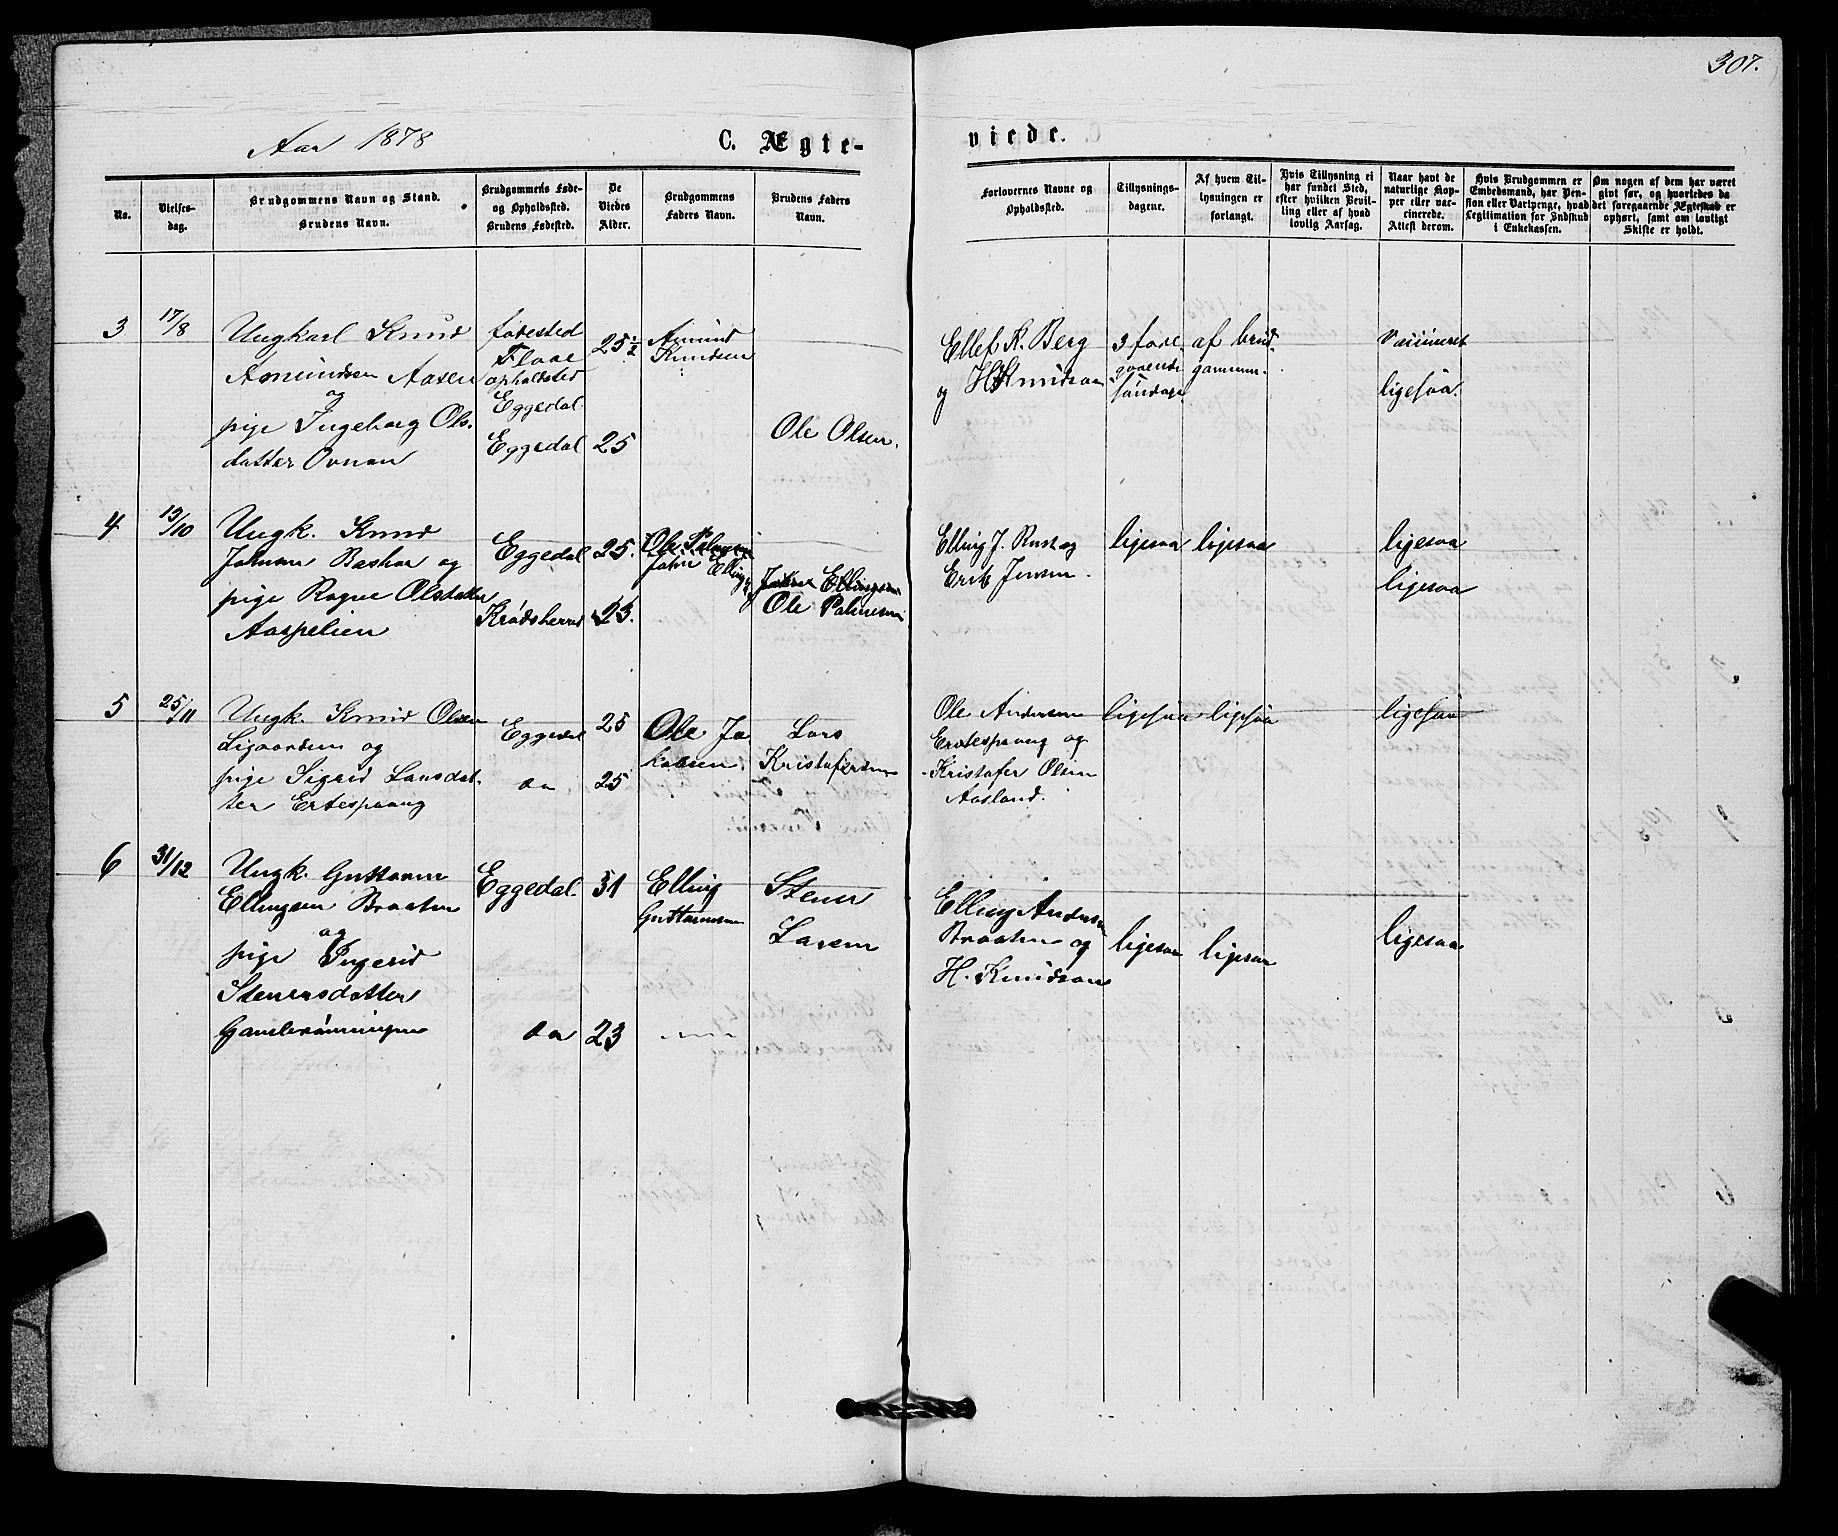 307.
Aar 1878
C. Ægteviede.
No.
Vielsesdag.
Brudgommens Navn og Stand.
Brudens Navn.
Brudgommens Føde-
og Opholdssted.
Brudens Fødested.
De
Viedes
Alder.
Brudgommens
Faders Navn.
Brudens Faders
Navn.
Forlovernes Navne og
Opholdssted.
Tillysnings-
dagene.
Af hvem Til-
lysningen er
forlangt.
Hvis Tillysning ei
har fundet Sted,
efter hvilken Bevil-
ling eller af hvad
lovlig Aarsag.
Naar havt de
naturlige Kop-
per eller vac-
cinerede.
Attest derom.
Hvis Brudgommen er
Embedsmand, har Pen-
sion eller Vartpenge, hvad
Legitimation for Indskud
i Enkekassen.
Om nogen af dem har været
givt før, og hvorledes da
det foregaaende Ægteskab er
ophørt, samt om lovligt
Skifte er holdt.
3
17/8
Ungkarl Knud
Amundsen Aasen
og
pige Ingeborg Ols-
datter Ovnan
fødested
Flaae
opholdsted
Eggedal
Eggedal
25 1/2
25
Amund
Knudsen
Ole Olsen.
Ellef K. Berg
og H. Knudson
3 fore
gaaende
søndage
af brud-
gommen.
Vaccineret
ligesaa.
4
13/10
Ungk. Knud
Johnsen Baskar og
pige Ragne Olsdatter
Aaspelien
Eggedal
Krødsherred
25.
23.
Ole Palmesen
John Ellings
John Ellingsen
Ole Palmesen
Elling J. Rust og
Erik Jensen.
ligesaa
ligesaa
ligesaa
ligesaa
5
25/11
Ungk. Knud Olsen
Ligaarden og
pige Sigrid Larsdat-
ter Ertespaang
Eggedal
do
25
25
Ole Ja
kobsen.
Lars
Kristofersen
Ole Andersen
Ertespaang og
Kristofer Olsen
Aasland.
ligesaa
ligesaa
ligesaa
6
31/12
Ungk. Guttorm
Ellingsen Braaten
og
pige Ingerid
Stenersdatter
Eggedal.
do
31
23
Elling
Guttormsen
Stener
Larsen
Elling Andersen
Braaten og
H. Knudson
ligesaa
ligesaa
ligesaa